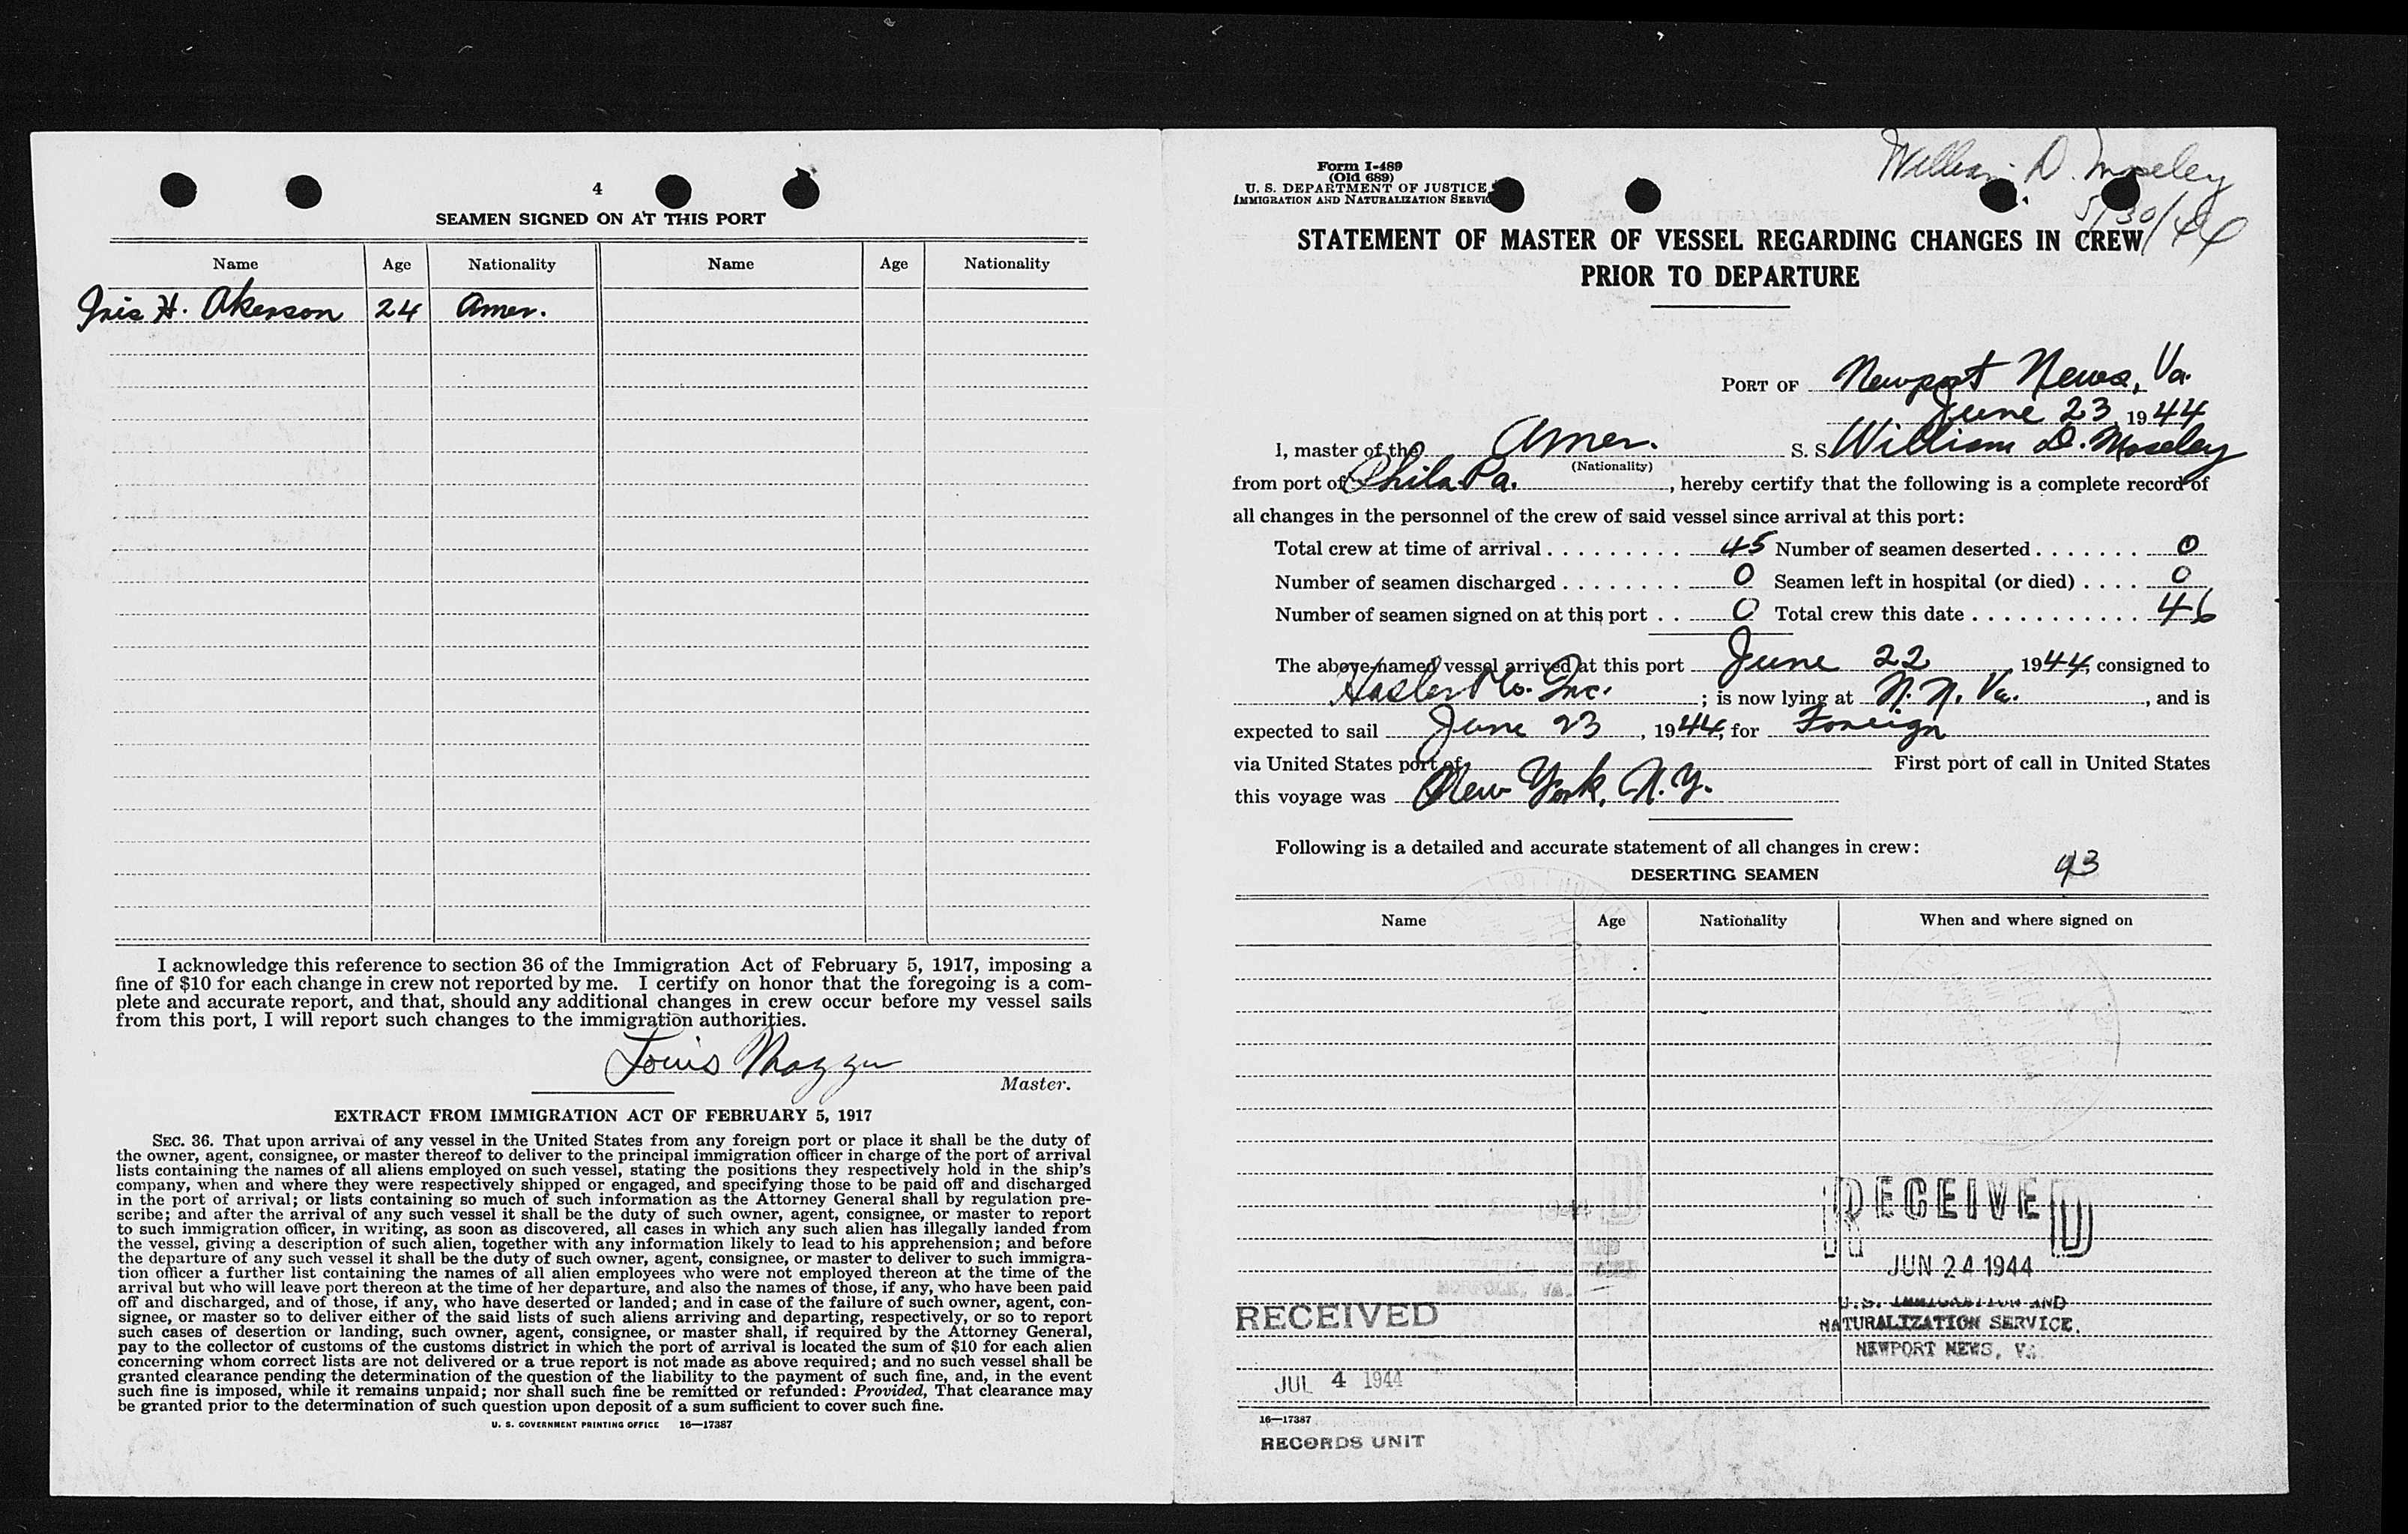 4
SEAMEN SIGNED ON AT THIS PORT
Name Age Nationality Name Age Nationality
Iris H. Akerson 24 Amer.
I acknowledge this reference to section 36 of the Immigration Act of February 5, 1917, imposing a
fine of $10 for each change in crew not reported by me. I certify on honor that the foregoing is a com-
plete and accurate report, and that, should any additional changes in crew occur before my vessel sails
from this port, I will report such changes to the immigration authorities.
Louis
Master.
EXTRACT FROM IMMIGRATION ACT OF FEBRUARY 5, 1917
SEC. 36. That upon arrival of any vessel in the United States from any foreign port or place it shall be the duty of
the owner, agent, consignee, or master thereof to deliver to the principal immigration officer in charge of the port of arrival
lists containing the names of all aliens employed on such vessel, stating the positions they respectively hold in the ship's
company, when and where they were respectively shipped or engaged, and specifying those to be paid off and discharged
in the port of arrival; or lists containing so much of such information as the Attorney General shall by regulation pre-
scribe; and after the arrival of any such vessel it shall be the duty of such owner, agent, consignee, or master to report
to such immigration officer, in writing, as soon as discovered, all cases in which any such alien has illegally landed from
the vessel, giving a description of such alien, together with any information likely to lead to his apprehension; and before
the departure of any such vessel it shall be the duty of such owner, agent, consignee, or master to deliver to such immigra-
tion officer a further list containing the names of all alien employees who were not employed thereon at the time of the
arrival but who will leave port thereon at the time of her departure, and also the names of those, if any, who have been paid
off and discharged, and of those, if any, who have deserted or landed; and in case of the failure of such owner, agent, con-
signee, or master so to deliver either of the said lists of such aliens arriving and departing, respectively, or so to report
such cases of desertion or landing, such owner, agent, consignee, or master shall, if required by the Attorney General,
pay to the collector of customs of the customs district in which the port of arrival is located the sum of $10 for each alien
concerning whom correct lists are not delivered or a true report is not made as above required; and no such vessel shall be
granted clearance pending the determination of the question of the liability to the payment of such fine, and, in the event
such fine is imposed, while it remains unpaid; nor shall such fine be remitted or refunded: Provided, That clearance may
be granted prior to the determination of such question upon deposit of a sum sufficient to cover such fine.
U. S. GOVERNMENT PRINTING OFFICE 16—17387
William D. Moseley
5/30/44
Form I-489
(Old 689)
U. S. DEPARTMENT OF JUSTICE
IMMIGRATION AND NATURALIZATION SERVIC
STATEMENT OF MASTER OF VESSEL REGARDING CHANGES IN CREW
PRIOR TO DEPARTURE
PORT OF Newport News, Va.
June 23, 1944
I, master of the Amer. S. S. William D. Moseley
(Nationality)
from port of Phila Pa., hereby certify that the following is a complete record of
all changes in the personnel of the crew of said vessel since arrival at this port:
Total crew at time of arrival . . . . . . . . . . 45 Number of seamen deserted . . . . . . . 0
Number of seamen discharged . . . . . . . . 0 Seamen left in hospital (or died) . . . . 0
Number of seamen signed on at this port . . 0 Total crew this date . . . . . . . . . . . . 46
The above-named vessel arrived at this port June 22, 1944, consigned to
Hasler & Co. Inc. ; is now lying at N. N. Va. , and is
expected to sail June 23, 1944, for Foreign
via United States port of First port of call in United States
this voyage was New York, N.Y.
Following is a detailed and accurate statement of all changes in crew:
DESERTING SEAMEN 93
Name Age Nationality When and where signed on
RECEIVED
JUN 24 1944
U. S. IMMIGRATION AND
NATURALIZATION SERVICE.
NEWPORT NEWS, VA.
NORFOLK, VA.
RECEIVED
JUL 4 1944
16—17387
RECORDS UNIT